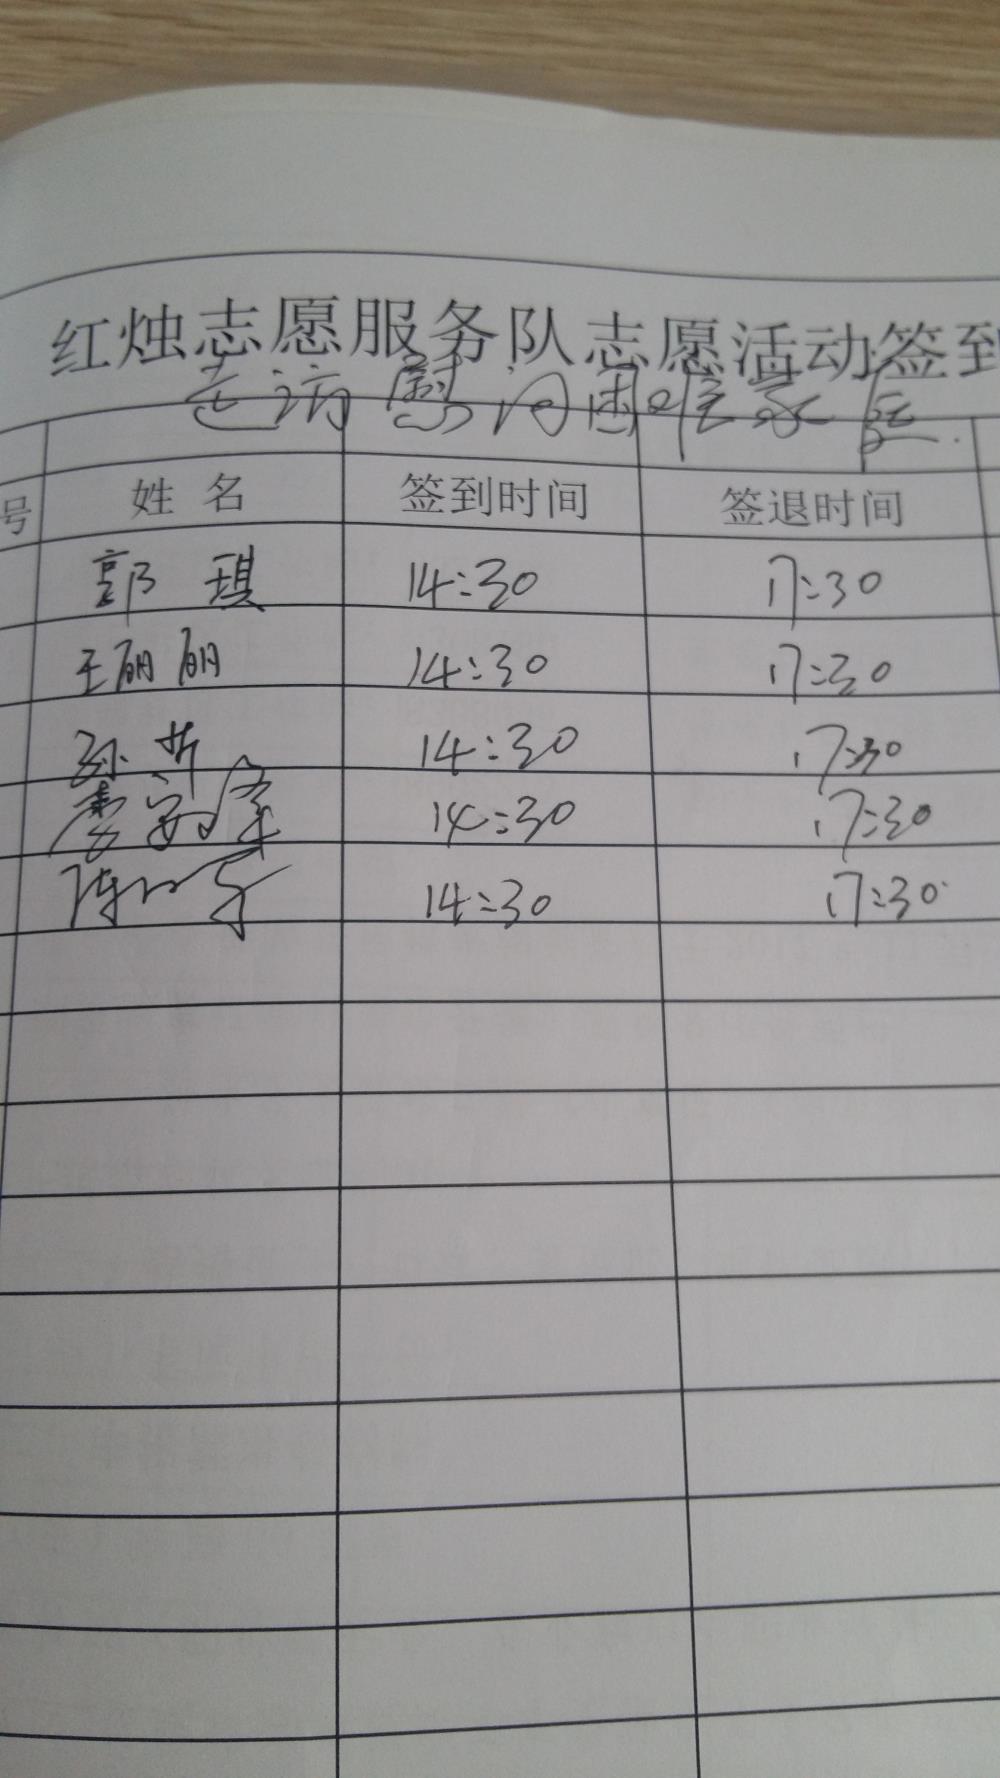 红烛志愿服务队志愿活动签到
走访慰问困难家庭.
号 姓 名 签到时间 签退时间
郭 琪 14:30 17:30
王丽丽 14:30 17:30
孙 14:30 17:30
14:30 17:30
陈 14:30 17:30